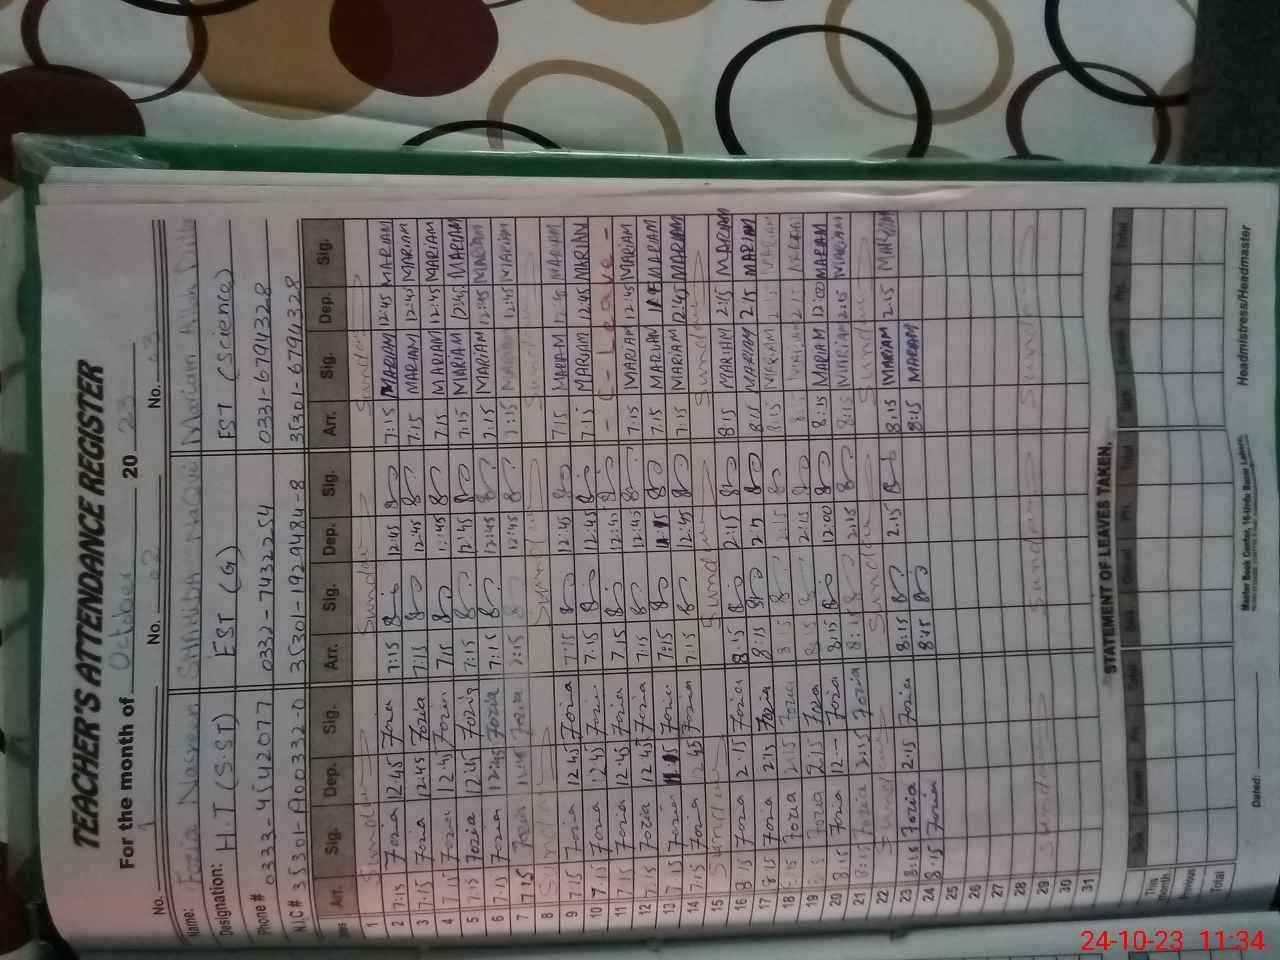 TEACHER'S ATTENDANCE REGISTER
For the month of October 20 23
No. 1 No. 02 No. 03
Name: Fozia Nasreen Mariam
Designation: H.T (S.ST) EST (G) EST (Science)
Phone # 0333-4542077 0332-7432254 0331-6794328
N.I.C# 35301-1929484-8 35301-6794328
Date Arr. Sig. Dep. Sig. Arr. Sig. Dep. Sig. Arr. Sig. Dep. Sig.
1 Sunday Sunday Sunday
2 7:15 Fozia 12:45 Fozia 7:15 12:45 7:15 MARIAM 12:45 MARIAM
3 7:15 Fozia 12:45 Fozia 7:15 12:45 7:15 MARIAM 12:45 MARIAM
4 7:15 Fozia 12:45 Fozia 7:15 12:45 7:15 MARIAM 12:45 MARIAM
5 7:15 Fozia 12:45 Fozia 7:15 12:45 7:15 MARIAM 12:45 MARIAM
6 7:15 Fozia 12:45 Fozia 7:15 12:45 7:15 MARIAM 12:45 MARIAM
7 7:15 Fozia Fozia 7:15 12:45 7:15 MARIAM 12:45 MARIAM
8 Sunday Sunday Sunday
9 7:15 Fozia 12:45 Fozia 7:15 12:45 7:15 MARIAM 12:45 MARIAM
10 7:15 Fozia 12:45 Fozia 7:15 12:45 7:15 MARIAM 12:45 MARIAM
11 7:15 Fozia 12:45 Fozia 7:15 12:45 - C - Leave -
12 7:15 Fozia 12:45 Fozia 7:15 12:45 7:15 MARIAM 12:45 MARIAM
13 7:15 Fozia 11:15 Fozia 7:15 11:15 7:15 MARIAM MARIAM
14 7:15 Fozia 12:45 Fozia 7:15 12:45 7:15 MARIAM 12:45 MARIAM
15 Sunday Sunday Sunday
16 8:15 Fozia 2:15 Fozia 8:15 2:15 8:15 MARIAM 2:15 MARIAM
17 8:15 Fozia 2:15 Fozia 8:15 2:15 8:15 MARIAM 2:15 MARIAM
18 8:15 Fozia 2:15 Fozia 8:15 2:15 8:15 MARIAM 2:15 MARIAM
19 8:15 Fozia 2:15 Fozia 8:15 2:15 8:15 MARIAM 2:15 MARIAM
20 8:15 Fozia 12 Fozia 8:15 12:00 8:15 MARIAM 12:00 MARIAM
21 8:15 Fozia 2:15 Fozia 8:15 2:15 8:15 MARIAM 2:15 MARIAM
22 Sunday Sunday Sunday
23 8:15 Fozia 2:15 Fozia 8:15 2:15 8:15 MARIAM 2:15 MARIAM
24 8:15 Fozia 8:15 8:15 MARIAM
25
26
27
28
29 Sunday Sunday Sunday
30
31
STATEMENT OF LEAVES TAKEN.
This month
Previous
Total
Dated: Master Book Center, 16-Urdu Bazar Lahore. Headmistress/Headmaster
24-10-23 11:34